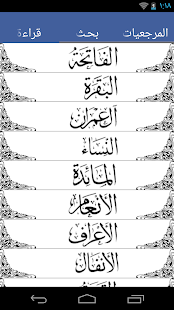 ١:١٨
المرجعيات بحث قراءة
الفَاتِحَة
البَقَرَة
آل عِمْرَان
النِّسَاء
المَائدَة
الأنعَام
الأعرَاف
الأنفَال